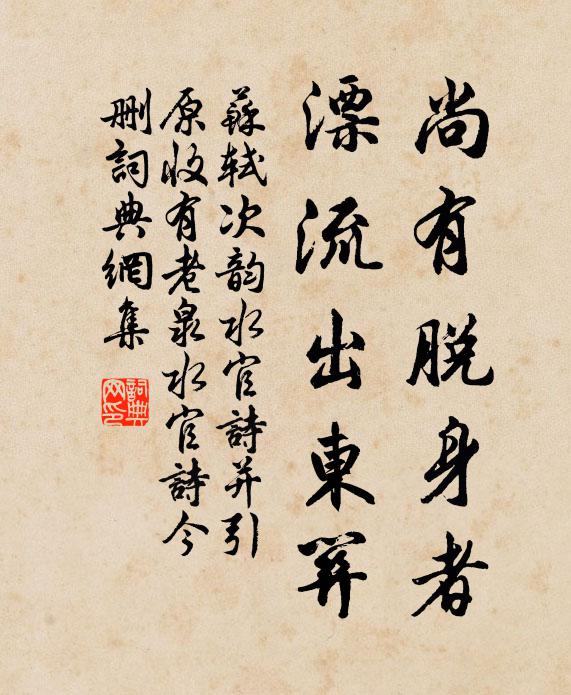 尚有脱身者
漂流出東關
蘇軾次韵水官詩并引
原收有老泉水官詩今
删詞典網集
詞典
网印